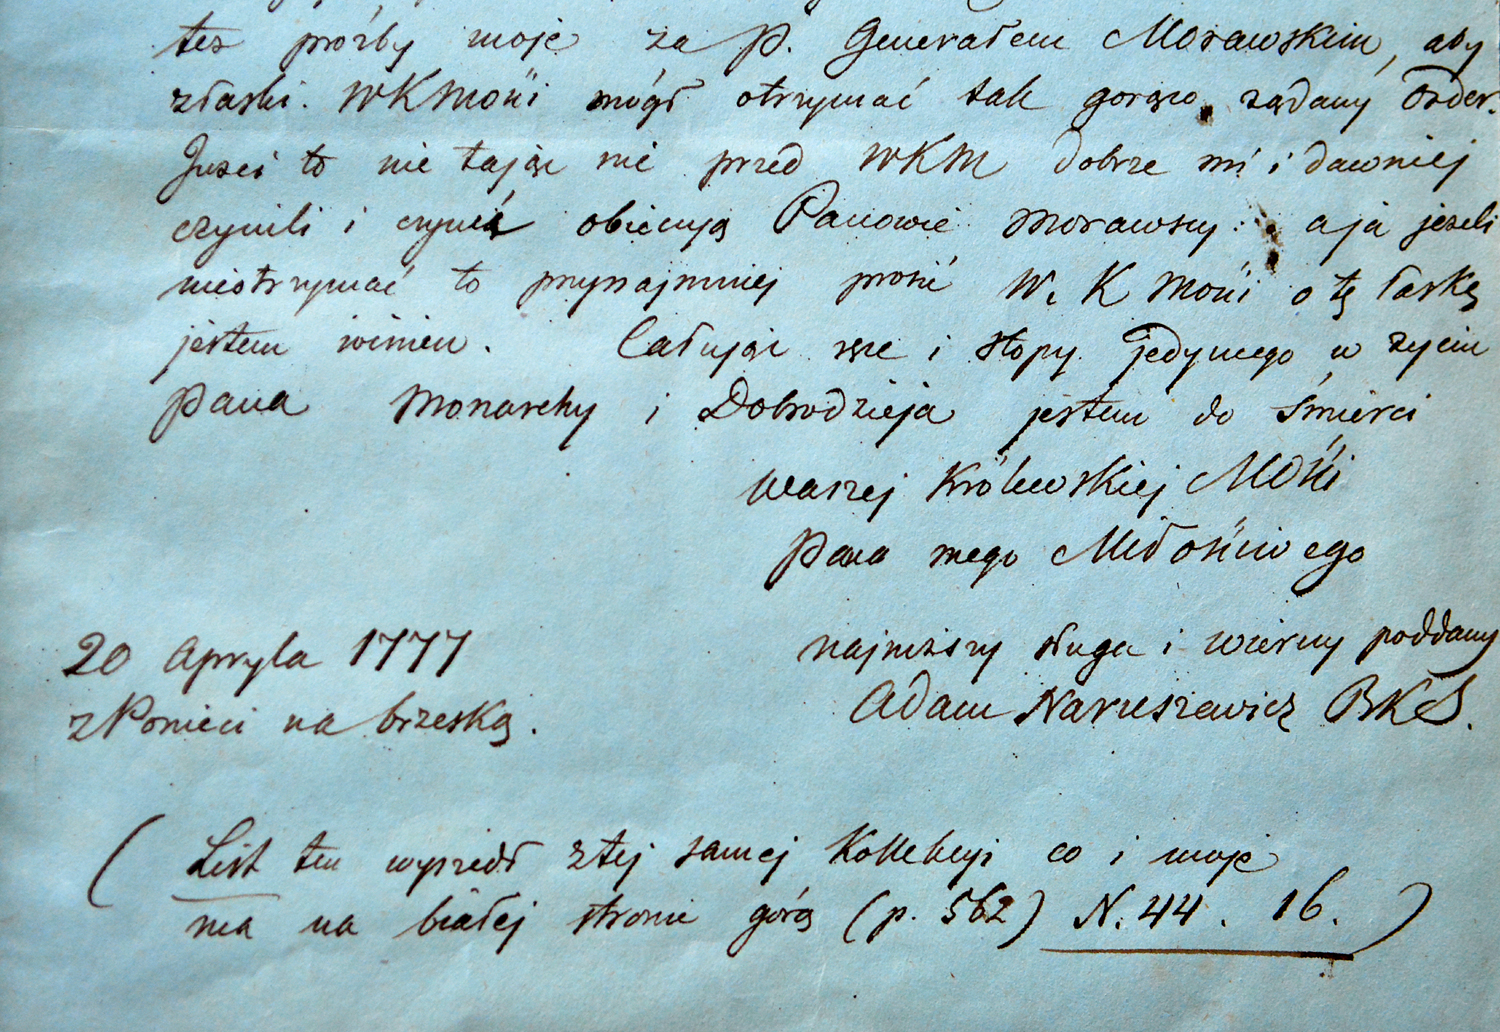 tez proźby moje za P. Generałem Morawskim, aby
złaski. WKMości mógł otrzymać tak gorąco żądany Order.
Juści to nie tając nic przed WKM dobrze mi i dawniej
czynili i czynić obiecują Panowie Morawscy: a ja jezeli
nieotrzymać to przynajmniej prosić W. K Mości o tę łaskę
jestem winien. Całując ręce i stopy jedynego w zyciu
Pana Monarchy i Dobrodzieja jestem do śmierci
Waszej Królewskiej Mości
Pana mego Miłościwego
najniższy sługa i wierny poddany
Adam Naruszewicz BKS.
20 Apryla 1777
z Ponieci na brzeską.
( List ten wyszedł z tej samej Kollekcyi co i moje
ma na białej stronie górą (p. 562) N. 44. 16. )